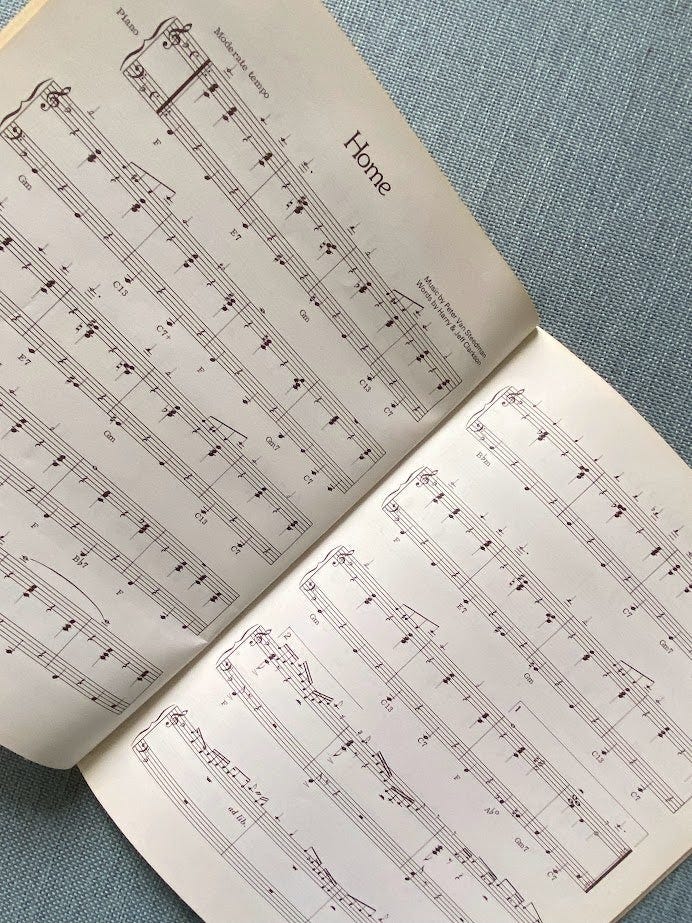 Home
Music by Peter Van Steedman
Words by Harry & Jeff Clarkson
Moderate tempo
Piano
F E7 Gm C13 C7
Gm C13 C7+ F Gm7 C7
E7 Gm C13 C7
F B♭7 F
B♭m C7 Gm7
F E7 Gm C13 C7
Gm C13 C7 F A♭° Gm7 C7
2
F
ad lib.